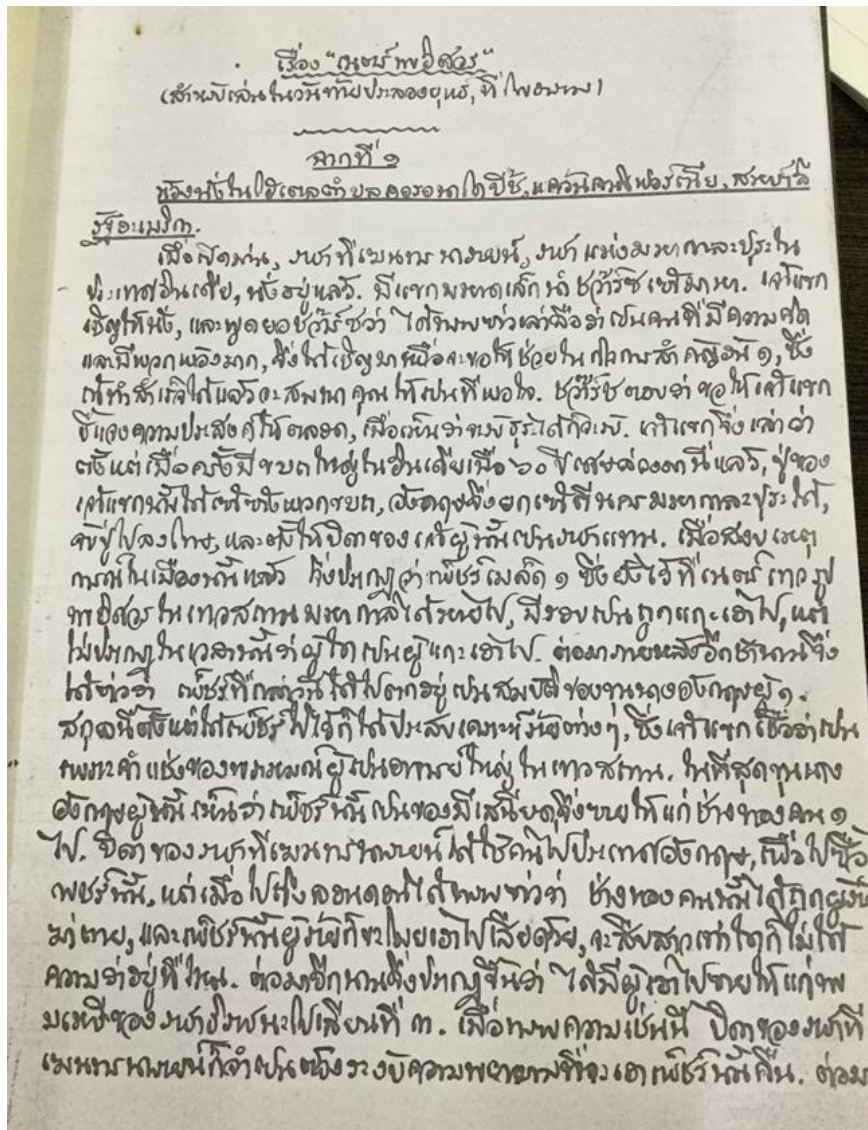 เรื่อง "เนตร์พระอิศวร"
(สำหรับเล่นในวันทำยประลองยุทธ์, ที่โพธาราม)
ฉากที่ ๑
ห้องนั่งในโฮเตลตำบลคอรอนาโดบีช, แคว้นคาลิฟอร์เนีย, สหปาลี
รัฐอเมริกา.
เมื่อเปิดม่าน, ราชาที่เฆนทรนารายน์, ราชาแห่งมหากาละปุระใน
ประเทศอินเดีย, นั่งอยู่แล้ว. มีแขกมหาดเล็กนำชว๊าร์ซเข้ามาหา. เจ้าแขก
เชิญให้นั่ง, และพูดยอชว๊าร์ซว่า ได้ทราบข่าวเล่าลือว่าเป็นคนที่มีความคิด
และมีพวกพ้องมาก, จึ่งได้เชิญมาเพื่อจะขอให้ช่วยในกิจการสำคัญอัน ๑, ซึ่ง
ถ้าทำสำเร็จได้แล้วจะสมนาคุณให้เป็นที่พอใจ. ชว๊าร์ซตอบว่า ขอให้เจ้าแขก
ชี้แจงความประสงค์ให้ตลอด, เมื่อเห็นว่าจะรับธุระได้ก็จะรับ. เจ้าแขกจึ่งเล่าว่า
ตั้งแต่เมื่อครั้งมีขบถใหญ่ในอินเดียเมื่อ ๖๐ ปีเศษล่วงมานี้แล้ว, ปู่ของ
เจ้าแขกนั้นได้เข้าข้างพวกขบถ, อังกฤษจึ่งยกเข้าตีนครมหากาละปุระได้,
จับปู่ไปลงโทษ, และตั้งให้บิดาของเจ้าผู้นั้นเป็นราชาแทน. เมื่อสงบเหตุ
การณ์ในเมืองนั้นแล้ว จึ่งปรากฏว่าเพ็ชร์เม็ด ๑ ซึ่งฝังไว้ที่เนตร์เทวรูป
พระอิศวรในเทวสถานมหากาลได้หายไป, มีรอยเป็นถูกแกะเอาไป, แต่
ไม่ปรากฏในเวลานั้นว่าผู้ใดเป็นผู้แกะเอาไป. ต่อมาภายหลังอีกช้านานจึ่ง
ได้ข่าวว่า เพ็ชร์ที่กล่าวนี้ได้ไปตกอยู่เป็นสมบัติของขุนนางอังกฤษผู้ ๑.
สกุลนี้ตั้งแต่ได้เพ็ชร์ไปไว้ก็ได้ประสบเคราะห์ร้ายต่างๆ, ซึ่งเจ้าแขกเชื่อว่าเป็น
เพราะคำแช่งของพราหมณ์ผู้เป็นอาจารย์ใหญ่ในเทวสถาน. ในที่สุดขุนนาง
อังกฤษผู้นั้นเห็นว่าเพ็ชร์นั้นเป็นของมีเสนียดจึ่งขายให้แก่ช่างทองคน ๑
ไป. บิดาของราชาที่เฆนทรนารายน์ได้ใช้คนไปประเทศอังกฤษ, เพื่อไปซื้อ
เพชร์นั้น, แต่เมื่อไปถึงลอนดอนได้ทราบข่าวว่า ช่างทองคนนั้นได้ถูกผู้ร้าย
ฆ่าตาย, และเพ็ชร์นั้นผู้ร้ายก็ขะโมยเอาไปเสียด้วย, จะสืบสาวเท่าใดก็ไม่ได้
ความว่าอยู่ที่ไหน. ต่อมาอีกนานจึ่งปรากฏขึ้นว่า ได้มีผู้เอาไปขายให้แก่พระ
มเหษีของราชาธิราชนะโปเลียนที่ ๓. เมื่อทราบความเช่นนี้ บิดาของราชาที่
เฆนทรนารายน์ก็จำเป็นต้องระงับความพยายามที่จะเอาเพ็ชร์นั้นคืน. ต่อมา